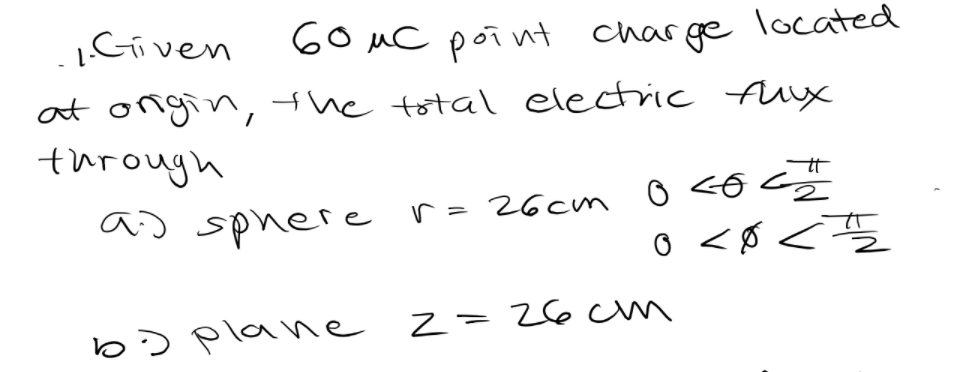 1. Given 60 μC point charge located
at origin, the total electric flux
through
a.) sphere r = 26cm 0 < θ < π/2
0 < ø < π/2
b.) plane z = 26 cm